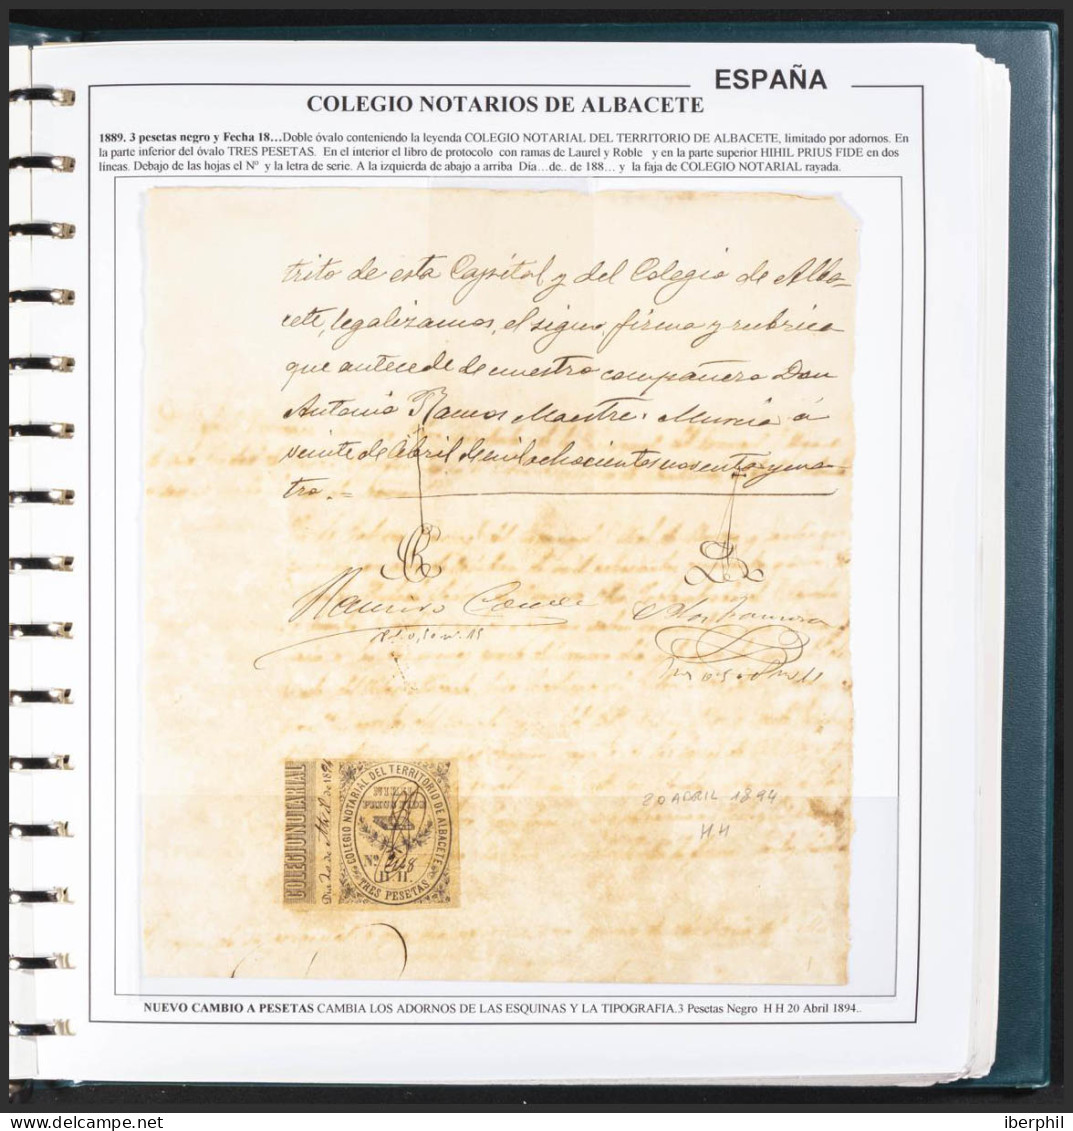 ESPAÑA
COLEGIO NOTARIOS DE ALBACETE
1889. 3 pesetas negro y Fecha 18…Doble óvalo conteniendo la leyenda COLEGIO NOTARIAL DEL TERRITORIO DE ALBACETE, limitado por adornos. En
la parte inferior del óvalo TRES PESETAS. En el interior el libro de protocolo con ramas de Laurel y Roble y en la parte superior HIHIL PRIUS FIDE en dos
líneas. Debajo de las hojas el Nº y la letra de serie. A la izquierda de abajo a arriba Día…de.. de 188… y la faja de COLEGIO NOTARIAL rayada.
trito de esta Capital y del Colegio de Alba-
cete, legalizamos, el signo, firma y rubrica
que antecede de nuestro compañero Don
Antonio Ramos Maestre. Murcia á
veinte de Abril de mil ochocientos noventa y cua-
tro.=
COLEGIO NOTARIAL
Dia 20 de Abril de 1894
COLEGIO NOTARIAL DEL TERRITORIO DE ALBACETE
NIHIL
PRIUS FIDE
Nº
H H.
TRES PESETAS
20 ABRIL 1894
H H
NUEVO CAMBIO A PESETAS CAMBIA LOS ADORNOS DE LAS ESQUINAS Y LA TIPOGRAFIA.3 Pesetas Negro H H 20 Abril 1894..
iberphil